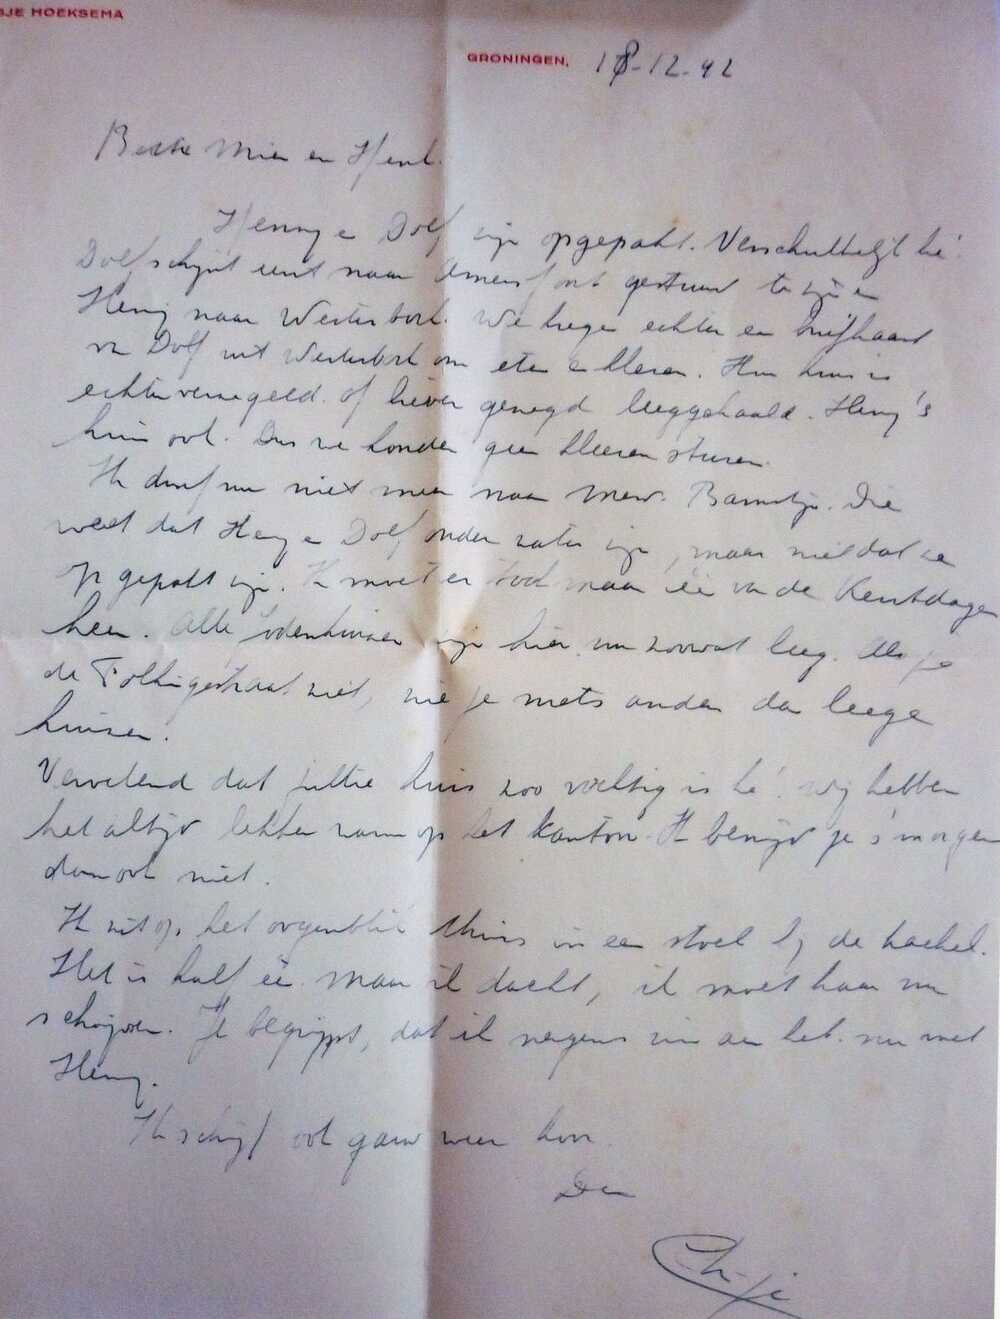 SJE HOEKSEMA
GRONINGEN, 18-12-42
Beste Mien en Henk.
Henny e Dolf zijn opgepakt. Verschrikkelijk hè!
Dolf schijnt eerst naar Amersfoort gestuurd te zijn en
Henny naar Westerbork. We kregen echter een briefkaart
van Dolf uit Westerbork om eten e kleren. Hun huis is
echter verzegeld of liever gezegd leeggehaald. Henny's
huis ook. Dus we konden geen kleeren sturen.
Ik durf nu niet meer naar mevr. Die
weet dat Henny e Dolf onder water zijn, maar niet dat ze
opgepakt zijn. Ik moet er toch maar één van de Kerstdagen
heen. Alle Jodenhuizen zijn hier nu zoowat leeg. Als je
de Folkingestraat ziet, zie je niets anders dan leege
huizen.
Vervelend dat jullie huis zoo vochtig is hè! Wij hebben
het altijd lekker warm op het kantoor. Ik benijd je 's morgens
dan ook niet.
Ik zit op het oogenblik thuis in een stoel bij de kachel.
Het is half één maar ik dacht, ik moet haar nu
schrijven. Je begrijpt, dat ik nergens zin aan heb nu met
Henny.
Ik schrijf ook gauw weer hoor.